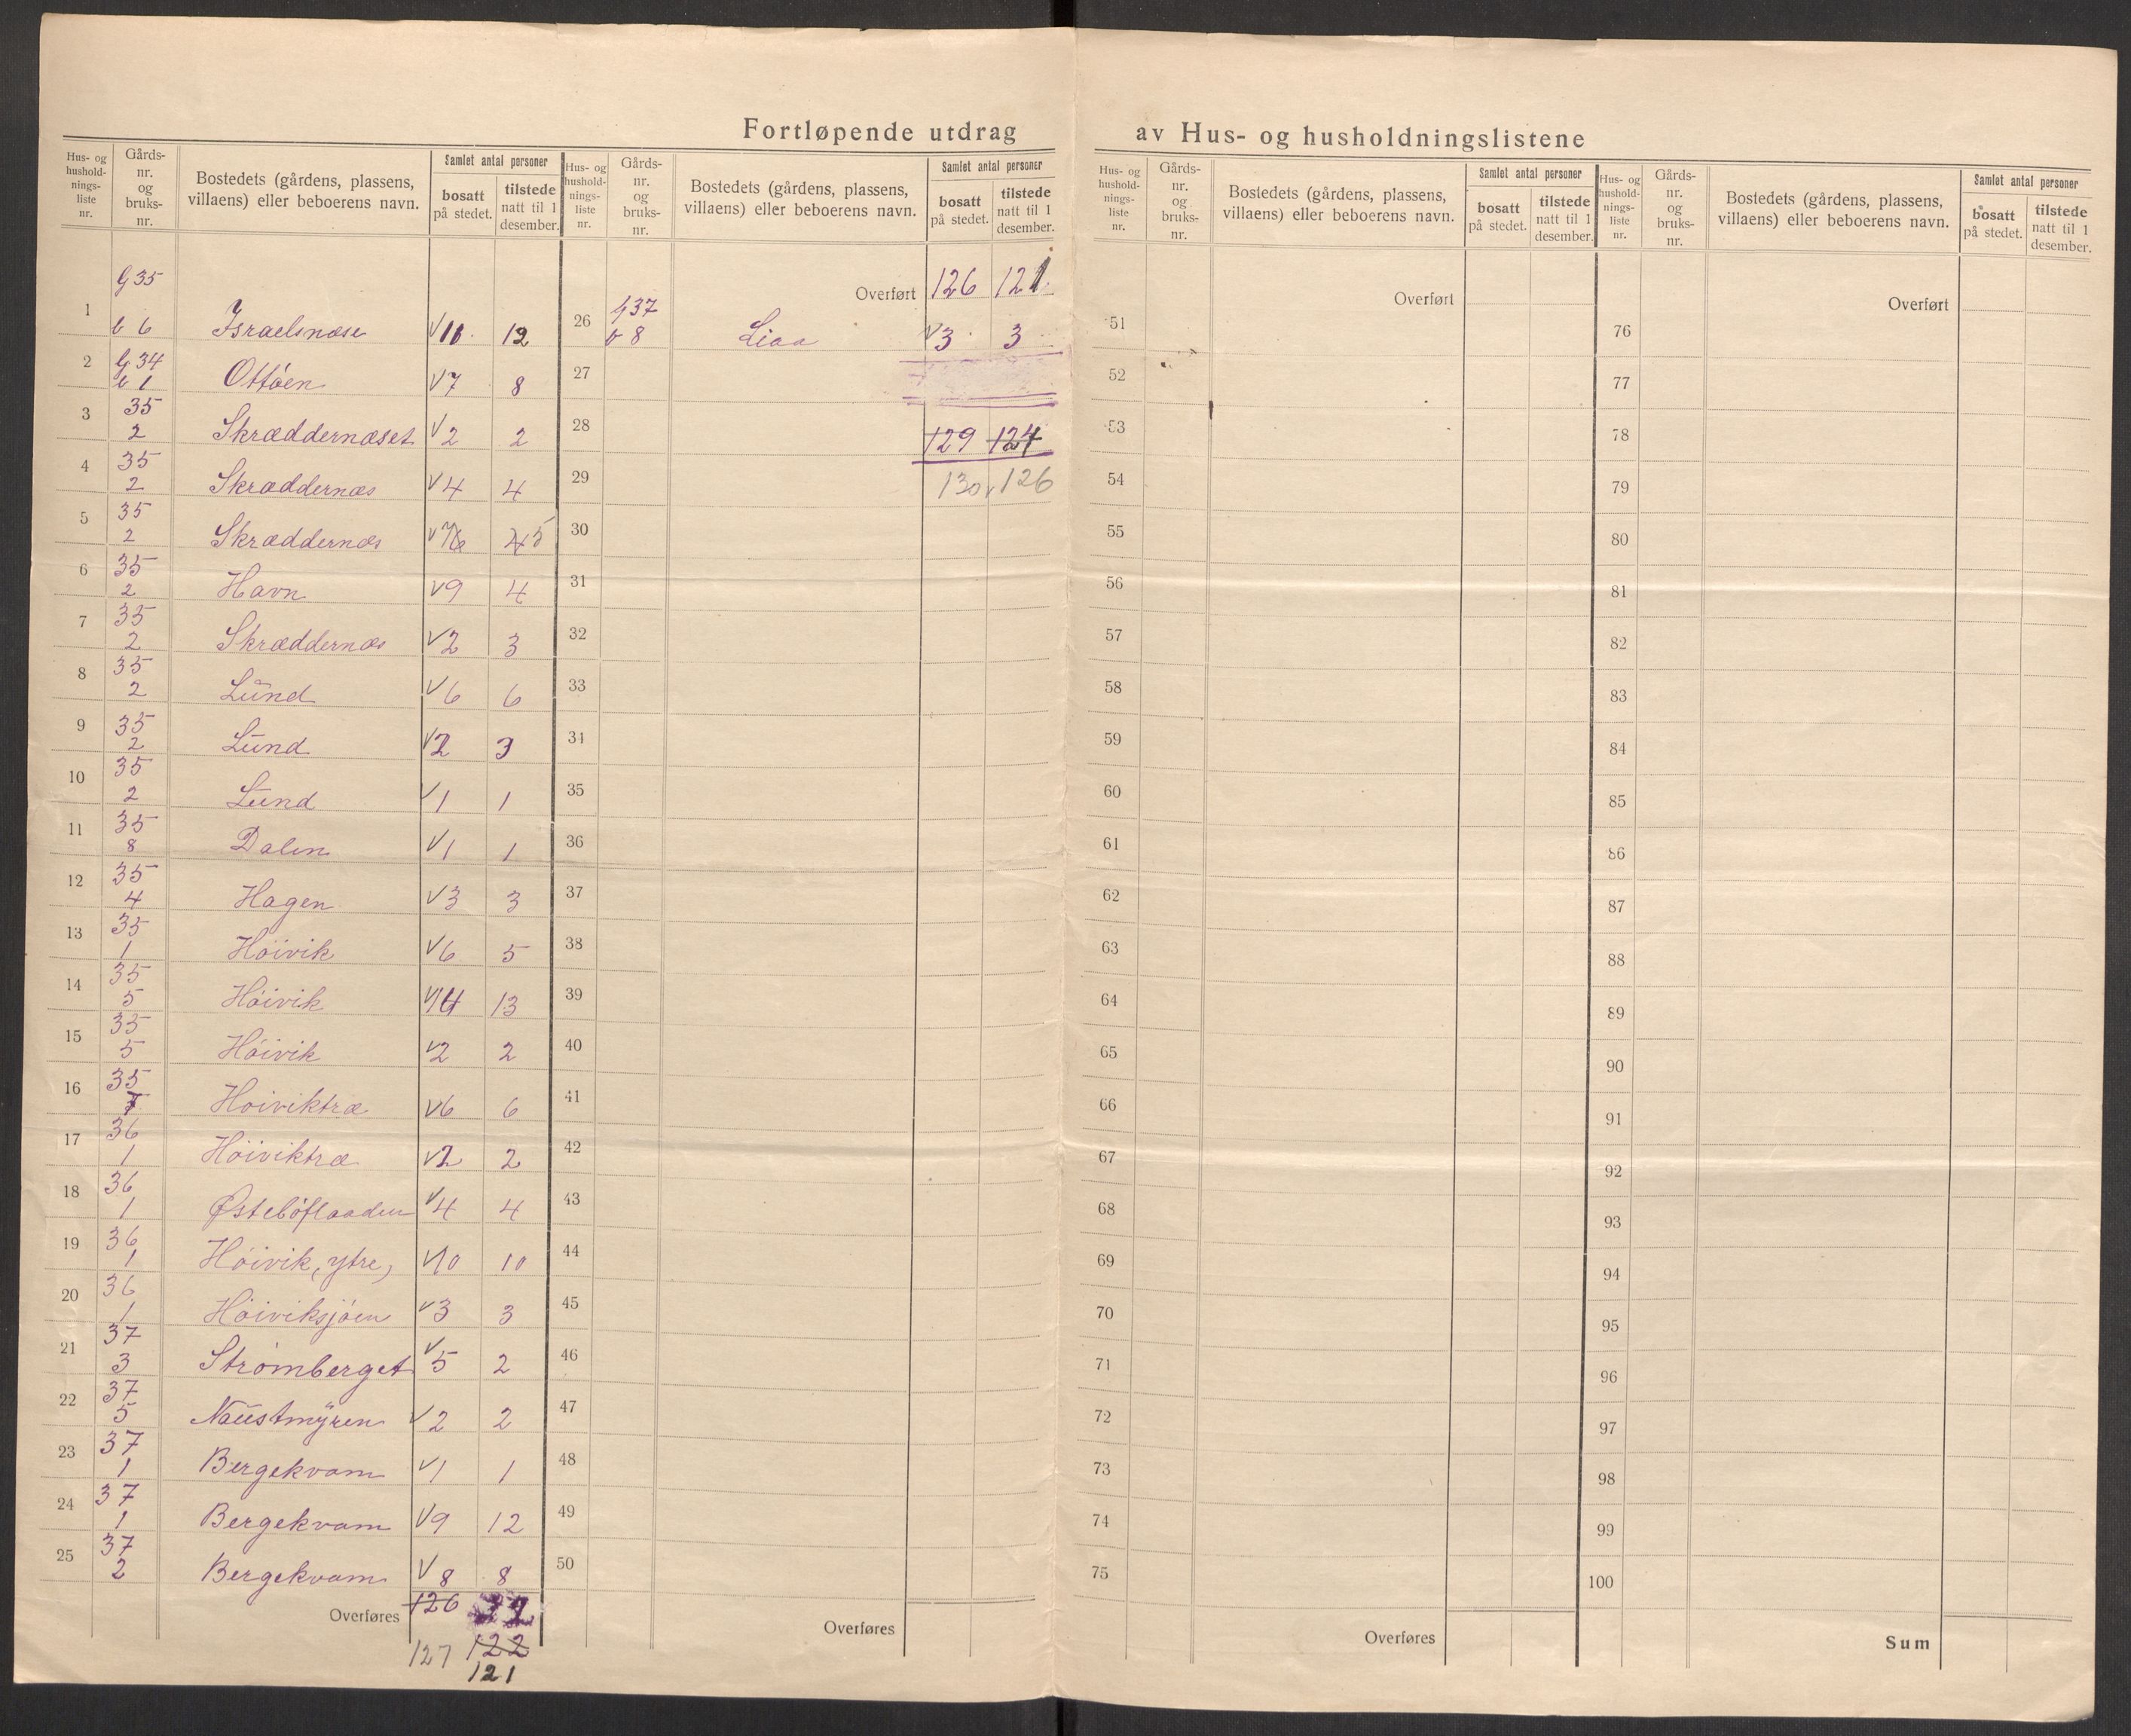 Fortløpende utdrag av Hus- og husholdningslistene
Hus- og hushold-nings-liste nr.
Gårds-nr. og bruks-nr.
Bostedets (gårdens, plassens, villaens) eller beboerens navn.
Samlet antal personer
bosatt på stedet.
tilstede natt til 1 desember.
G 35
1 b 6 Israelsnæse V 11. 12
2 G 34 b 1 Ottöen V 7 8
3 35 2 Skræddernæset V 2 2
4 35 2 Skræddernæs V 4 4
5 35 2 Skræddernæs V 6 5
6 35 2 Havn V 9 4
7 35 2 Skræddernæs V 2 3
8 35 2 Lund V 6 6
9 35 2 Lund V 2 3
10 35 2 Lund V 1 1
11 35 8 Dalen V 1 1
12 35 4 Hagen V 3 3
13 35 1 Höivik V 6 5
14 35 5 Höivik V 14 13
15 35 5 Höivik V 2 2
16 35 7 Hoiviktræ V 6 6
17 36 1 Höiviktræ V 2 2
18 36 1 Østeböflaaden V 4 4
19 36 1 Höivik, ytre, V 10 10
20 36 1 Höiviksjöen V 3 3
21 37 3 Strömberget V 5 2
22 37 5 Naustmyren V 2 2
23 37 1 Bergekvam V 1 1
24 37 1 Bergekvam V 9 12
25 37 2 Bergekvam V 8 8
Overføres 126
127 122
121
Hus- og hushold-nings-liste nr.
Gårds-nr. og bruks-nr.
Bostedets (gårdens, plassens, villaens) eller beboerens navn.
Samlet antal personer
bosatt på stedet.
tilstede natt til 1 desember.
Overført 126 121.
26 G 37 b 8 Liaa V 3. 3
27
28 129 124
29 130 v 126
30
31
32
33
34
35
36
37
38
39
40
41
42
43
44
45
46
47
48
49
50
Overføres
Hus- og hushold-nings-liste nr.
Gårds-nr. og bruks-nr.
Bostedets (gårdens, plassens, villaens) eller beboerens navn.
Samlet antal personer
bosatt på stedet.
tilstede natt til 1 desember.
Overført
51
52
53
54
55
56
57
58
59
60
61
62
63
64
65
66
67
68
69
70
71
72
73
74
75
Overføres
Hus- og hushold-nings-liste nr.
Gårds-nr. og bruks-nr.
Bostedets (gårdens, plassens, villaens) eller beboerens navn.
Samlet antal personer
bosatt på stedet.
tilstede natt til 1 desember.
Overført
76
77
78
79
80
81
82
83
84
85
86
87
88
89
90
91
92
93
94
95
96
97
98
99
100
Sum